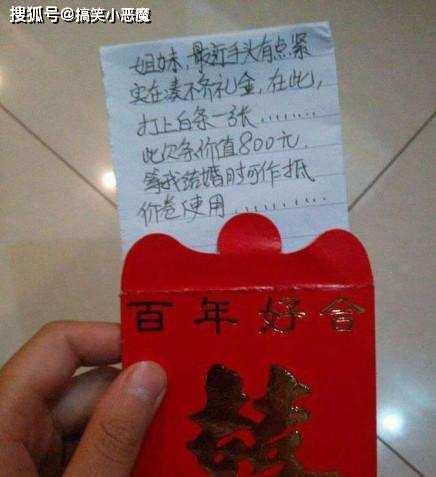 搜狐号@搞笑小恶魔
姐妹，最近手头有点紧
实在凑不齐礼金，在此，
打上白条一张........
此欠条价值800元.
等我结婚时可作抵
价卷使用..........
百年好合
囍